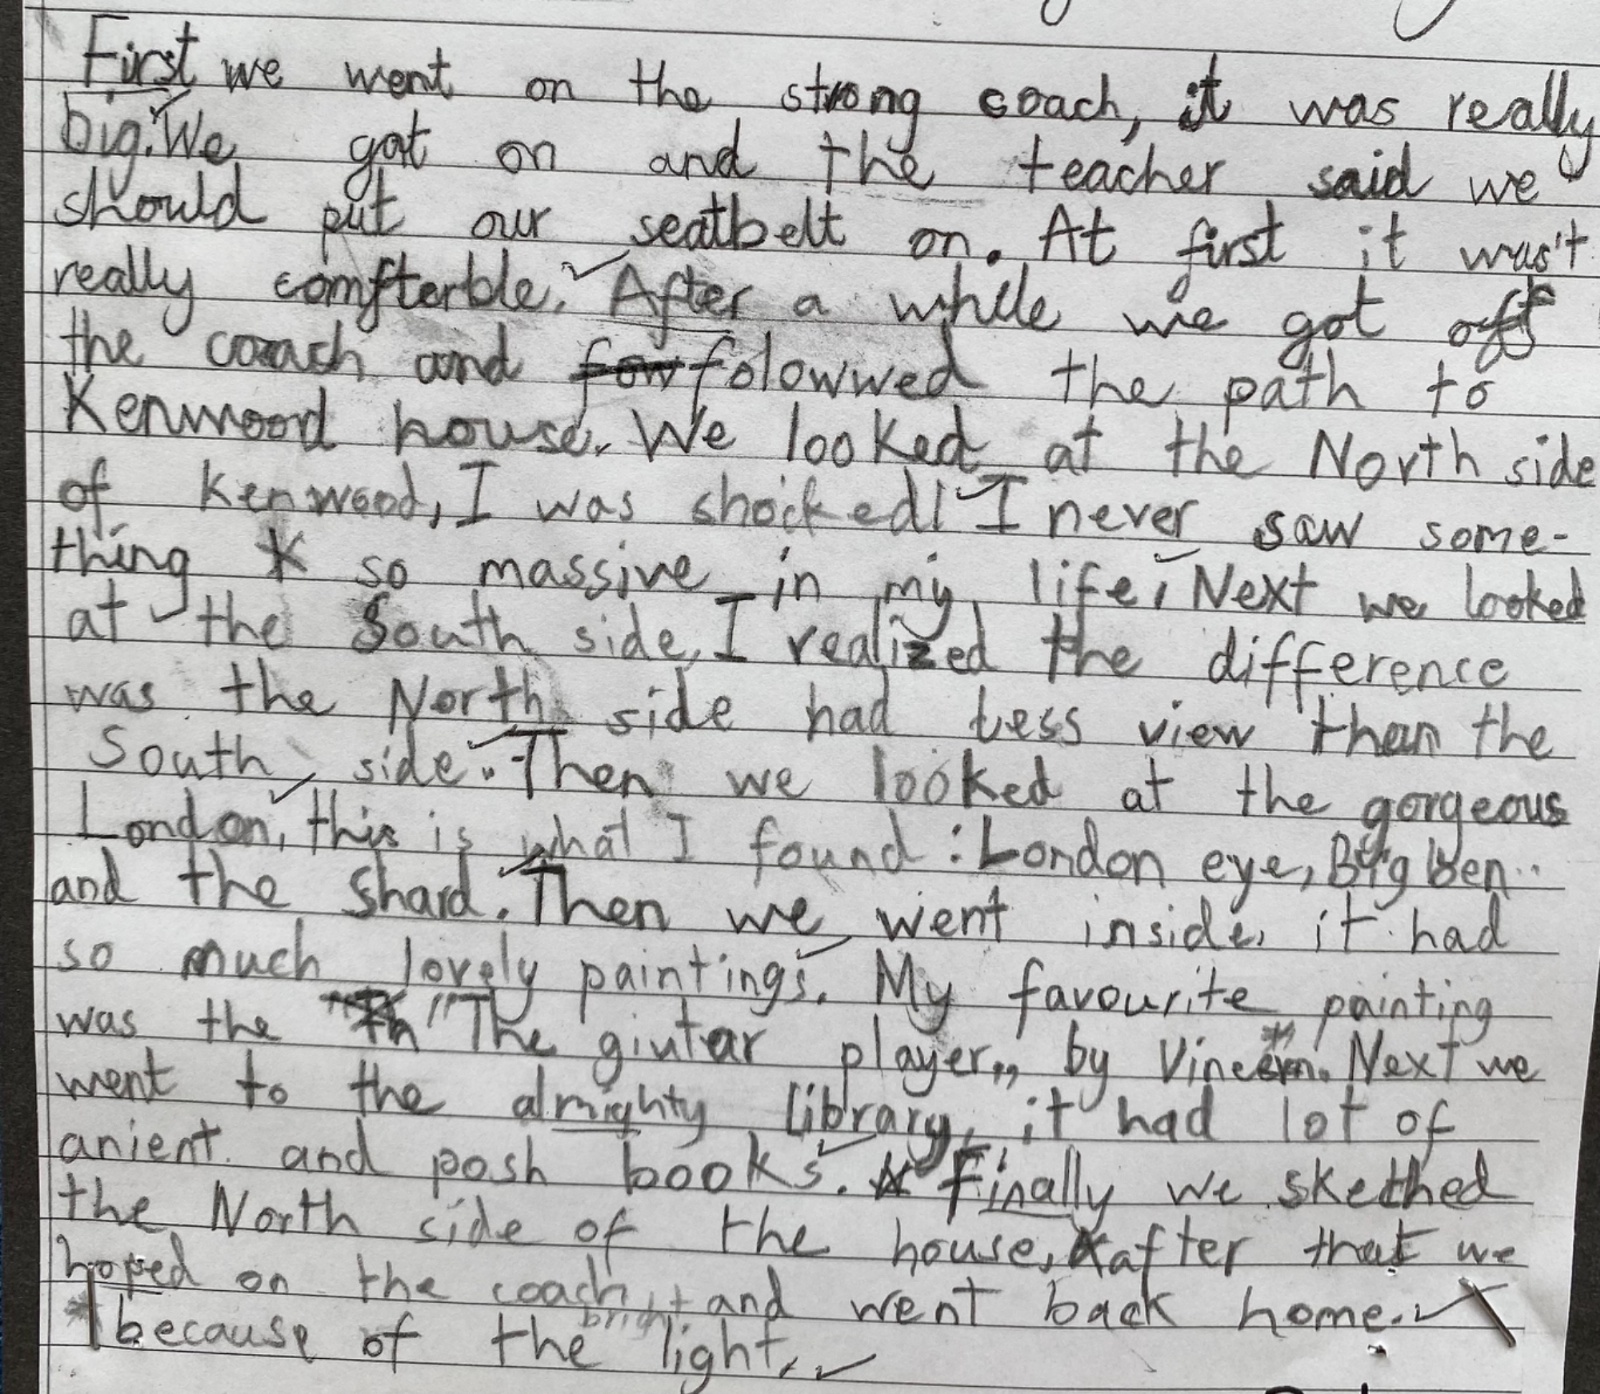 First we went on the strong coach, it was really
big. We got on and the teacher said we
should put our seatbelt on. At first it was't
really comfterble. After a while we got off
the coach and fow folowwed the path to
Kenwood house. We looked at the North side
of kenwood, I was shocked! I never saw some-
thing so massive in my life, Next we looked
at the South side, I realized the difference
was the North side had less view than the
South side. Then we looked at the gorgeous
London, this is what I found: London eye, Big ben
and the Shard. Then we went inside, it had
so much lovely paintings. My favourite painting
was the "Th "The giutar player,, by Next we
went to the almighty library, it had lot of
anient and posh books. Finally we skethed
the North side of the house, after that we
hoped on the coach, and went back home.
* because of the bright light.